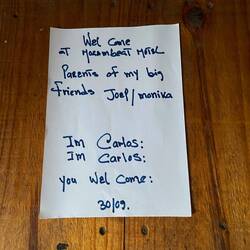 Wel Come
at Mozambeat Motel
Parents of my big
friends Joel/monika
Im Carlos:
Im Carlos:
you Wel Come:
30/09.